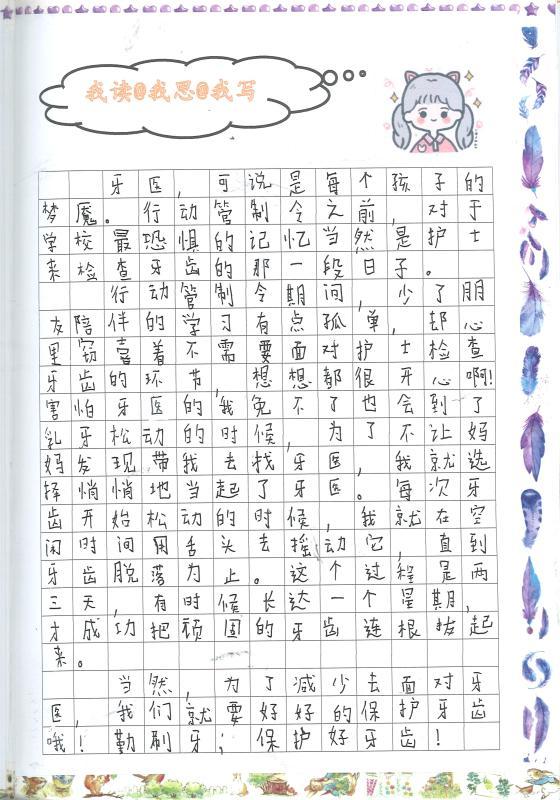 我读 我思 我写
牙医，可说是每个孩子的
梦魇。行动管制令之前，对于
学校最恐惧的记忆当然是护士
来检查牙齿的那一段日子。
行动管制令期间，少了朋
友陪伴的学习有点孤单，却心
里窃喜着不需要面对护士检查
牙齿的环节，想想都很开心啊！
害怕牙医的我免不了也会到了
乳牙松动的时候，为了不让妈
妈发现带我去找牙医，我就选
择悄悄地当起了牙医。每次牙
齿开始松动的时候，我就在空
闲时间用舌头去摇动它，直到
牙齿脱落为止。这个过程是两
三天，有时候长达一个星期，
才成功把顽固的牙齿连根拔起
来。
当然，为了减少去面对牙
医，我们就要好好的保护牙齿
哦！勤刷牙；保护好牙齿！